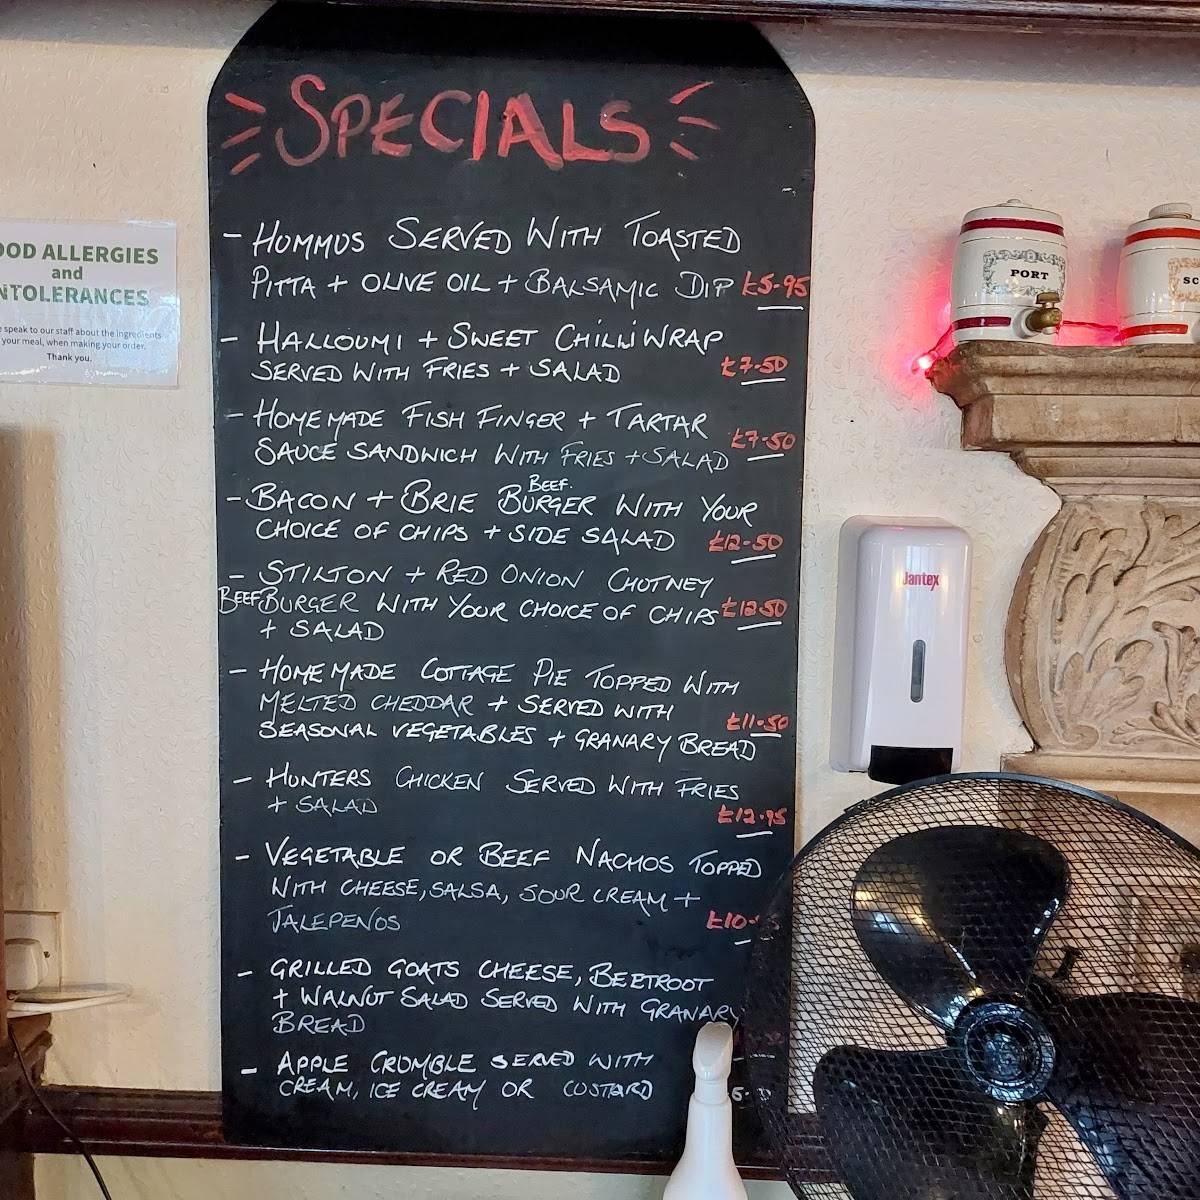 SPECIALS
- HUMMUS SERVED WITH TOASTED
PITTA + OLIVE OIL + BALSAMIC DIP £5.95
- HALLOUMI + SWEET CHILLI WRAP
SERVED WITH FRIES + SALAD £7.50
- HOMEMADE FISH FINGER + TARTAR
SAUCE SANDWICH WITH FRIES + SALAD £7.50
- BACON + BRIE BEEF BURGER WITH YOUR
CHOICE OF CHIPS + SIDE SALAD £12.50
- STILTON + RED ONION CHUTNEY
BEEF BURGER WITH YOUR CHOICE OF CHIPS £12.50
+ SALAD
- HOMEMADE COTTAGE PIE TOPPED WITH
MELTED CHEDDAR + SERVED WITH
SEASONAL VEGETABLES + GRANARY BREAD £11.50
- HUNTERS CHICKEN SERVED WITH FRIES
+ SALAD £12.95
- VEGETABLE OR BEEF NACHOS TOPPED
WITH CHEESE, SALSA, SOUR CREAM +
JALEPENOS £10.
- GRILLED GOATS CHEESE, BEETROOT
+ WALNUT SALAD SERVED WITH GRANARY
BREAD
- APPLE CRUMBLE SERVED WITH
CREAM, ICE CREAM OR CUSTARD
OOD ALLERGIES
and
NTOLERANCES
e speak to our staff about the ingredients
your meal, when making your order.
Thank you.
PORT
SC
Jantex